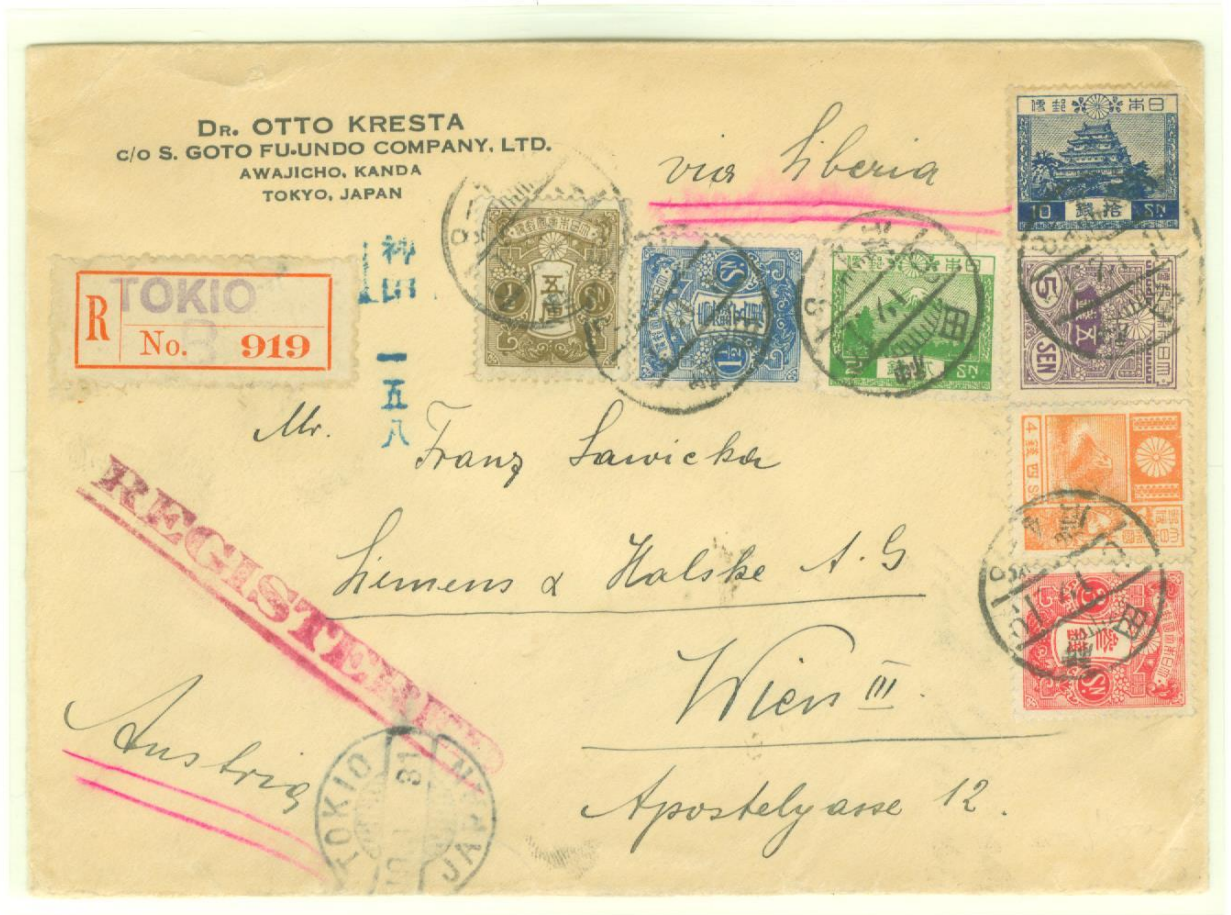 DR. OTTO KRESTA
C/O S. GOTO FU-UNDO COMPANY, LTD.
AWAJICHO, KANDA
TOKYO, JAPAN
via Siberia
R
TOKIO
B
No. 919
神田
一五八
REGISTERED
Mr. Franz Sawicka
Siemens & Halske A.G
Wien III.
Apostelgasse 12.
Austria
TOKIO
JAPAN
五厘
1/2 SN
1 1/2 SN
2 SN
日本郵便
10 拾銭 SN
5 SEN
4 銭四 S
3 SN